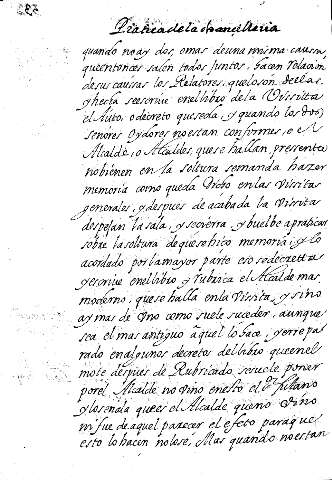 Pratica de la Chancilleria
quando no ay dos, o mas de una misma causa
que entonces salen todos juntos, hacen relacion
de sus causas los Relatores, que lo son de ellas
y hecha se escrive en el libro de la Vissitta
el Auto, o decreto que se da, y quando los dos
señores Oydores no estan conformes, o el
Alcalde, o Alcaldes, que se hallan presentes
no bienen en la soltura se manda hazer
memoria como queda dicho en las Vissitas
generales, y despues de acabada la Vissita
despejan la sala, y se cierra, y buelbe a praticar
sobre la soltura de que se hizo memoria, y lo
acordado por la mayor parte eso se decretta
y escrive en el libro y rubrica el Alcalde mas
moderno, que se halla en la Vissita, y si no
ay mas de uno como suele suceder, aunque
sea el mas antiguo aquel lo hace, y e rrepa
rado en algunos decretos del libro que en el
mote despues de Rubricado, se suele poner
por el Alcalde no vino en esto el Sr. fulano
y lo señala que es el Alcalde que no vino
ni fue de aquel parecer el efeto para que
esto lo hacen no lo se, Mas quando no estan